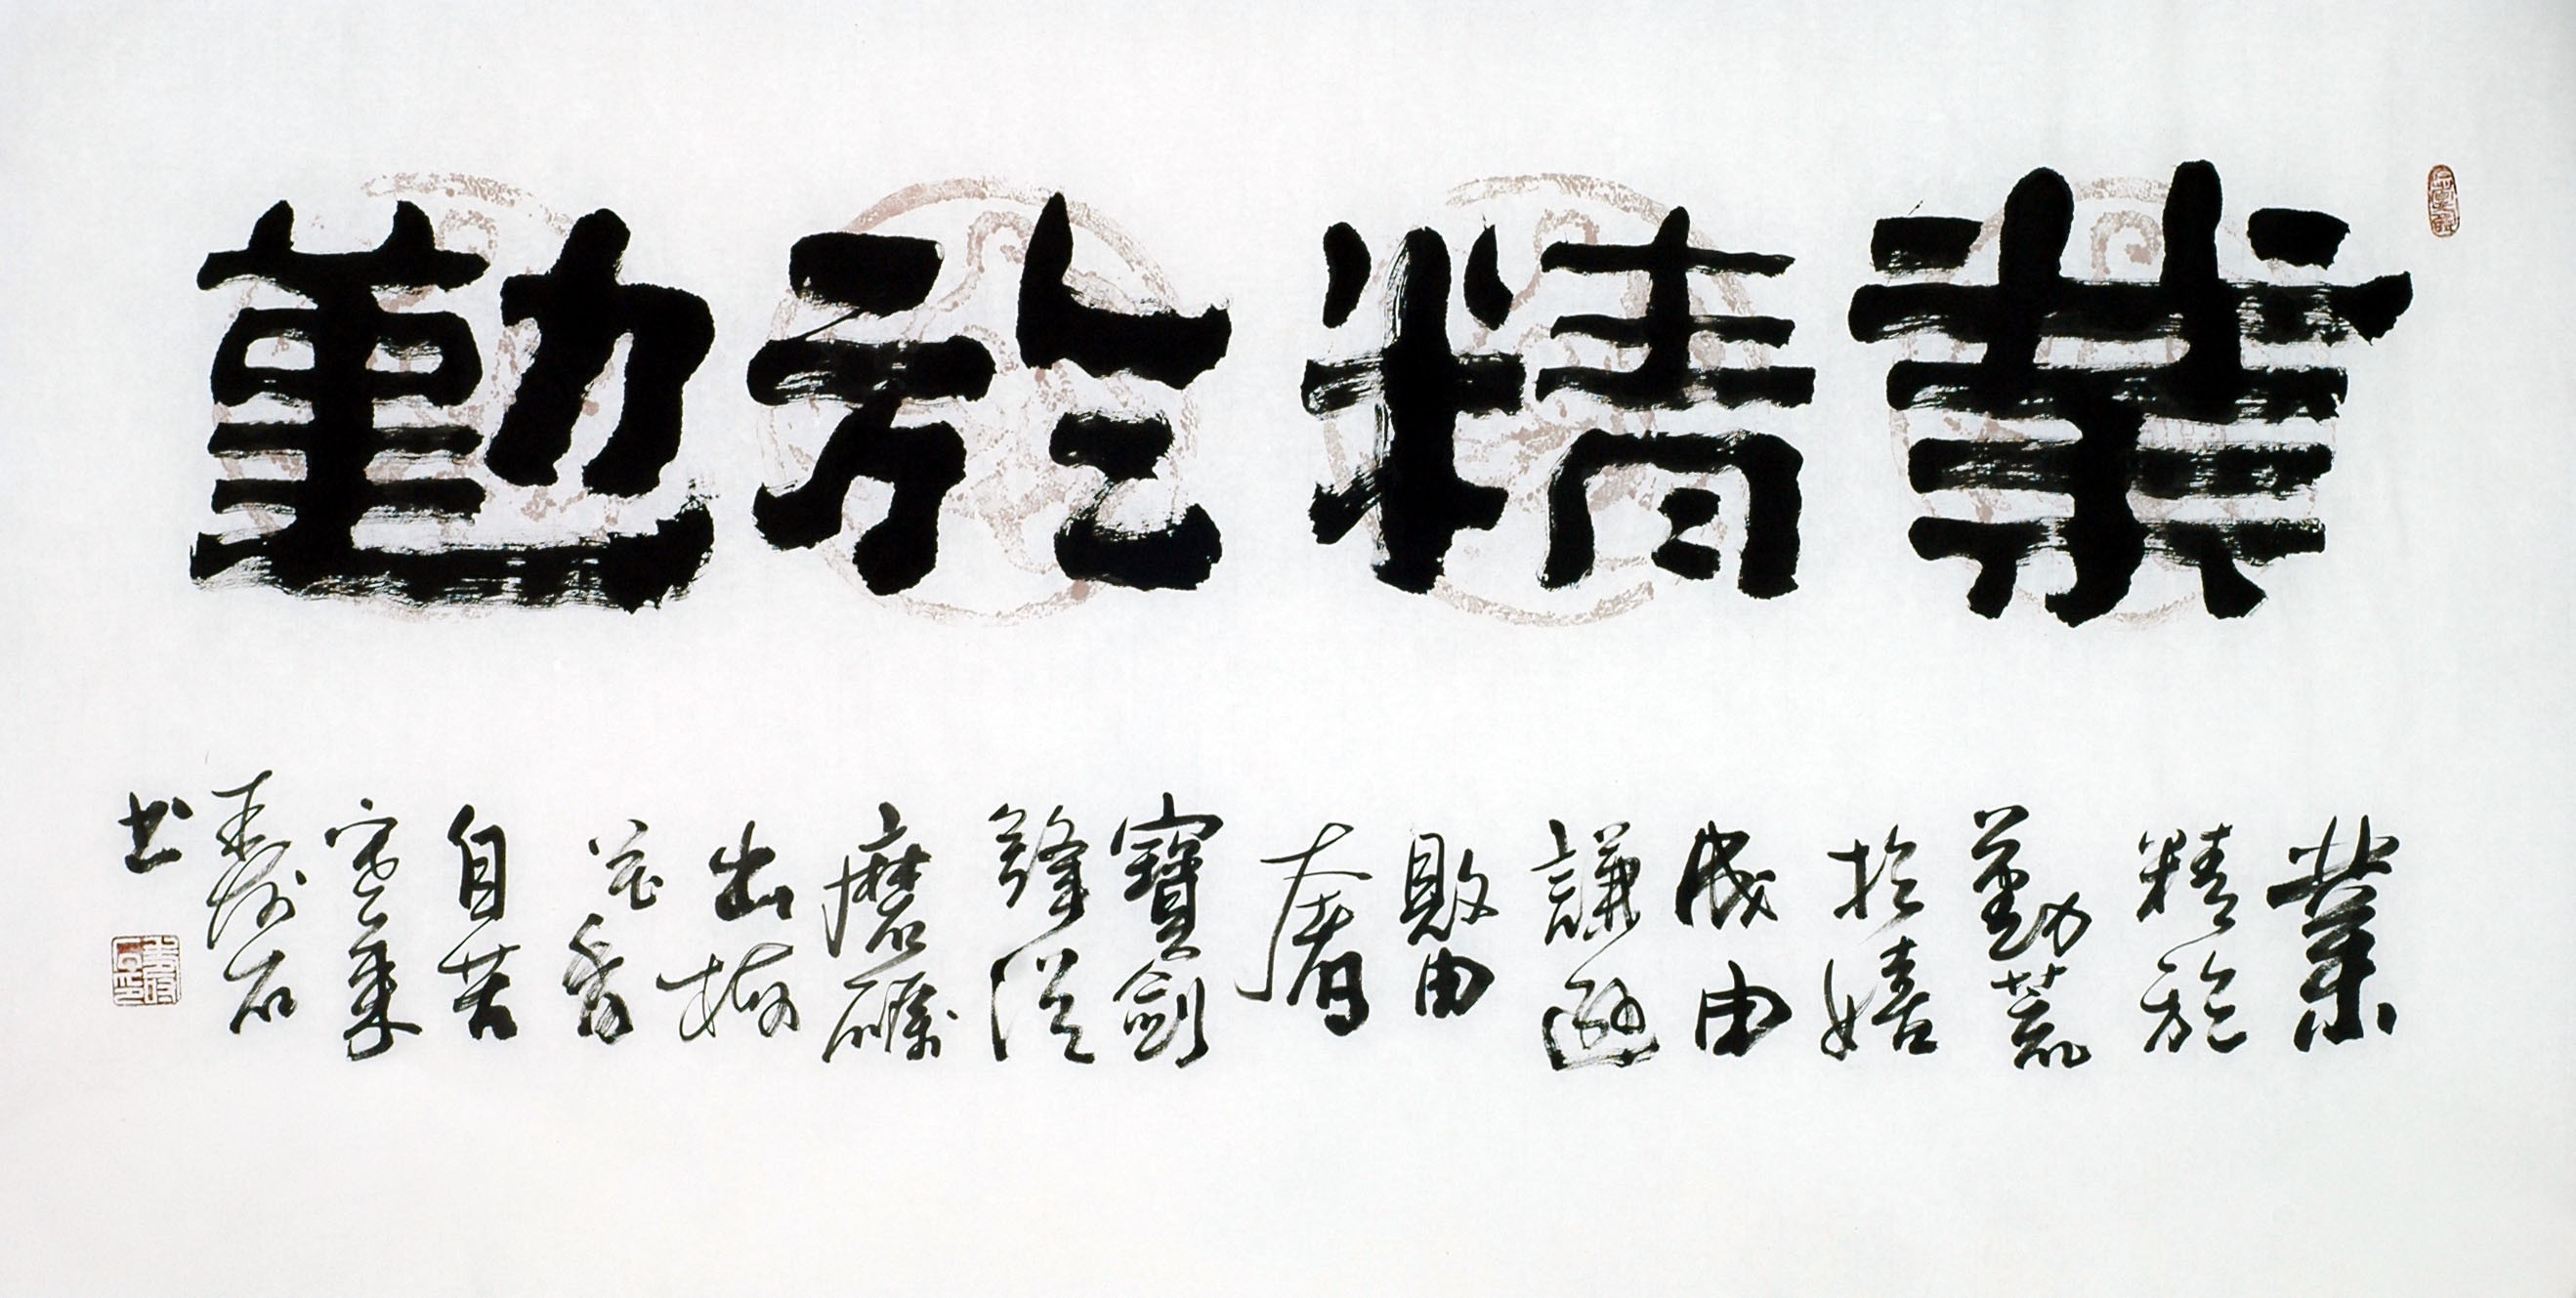 業精於勤
業
精於
勤荒
扵嬉
成由
謙遜
敗由
奢
寶劍
鋒從
磨礪
出梅
花香
自苦
寒来
石
书